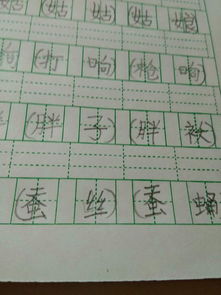 (姑 姑)(姑 娘
(打 响)(枪 响
(胖 子)(胖
(蚕 丝)(蚕 蛹